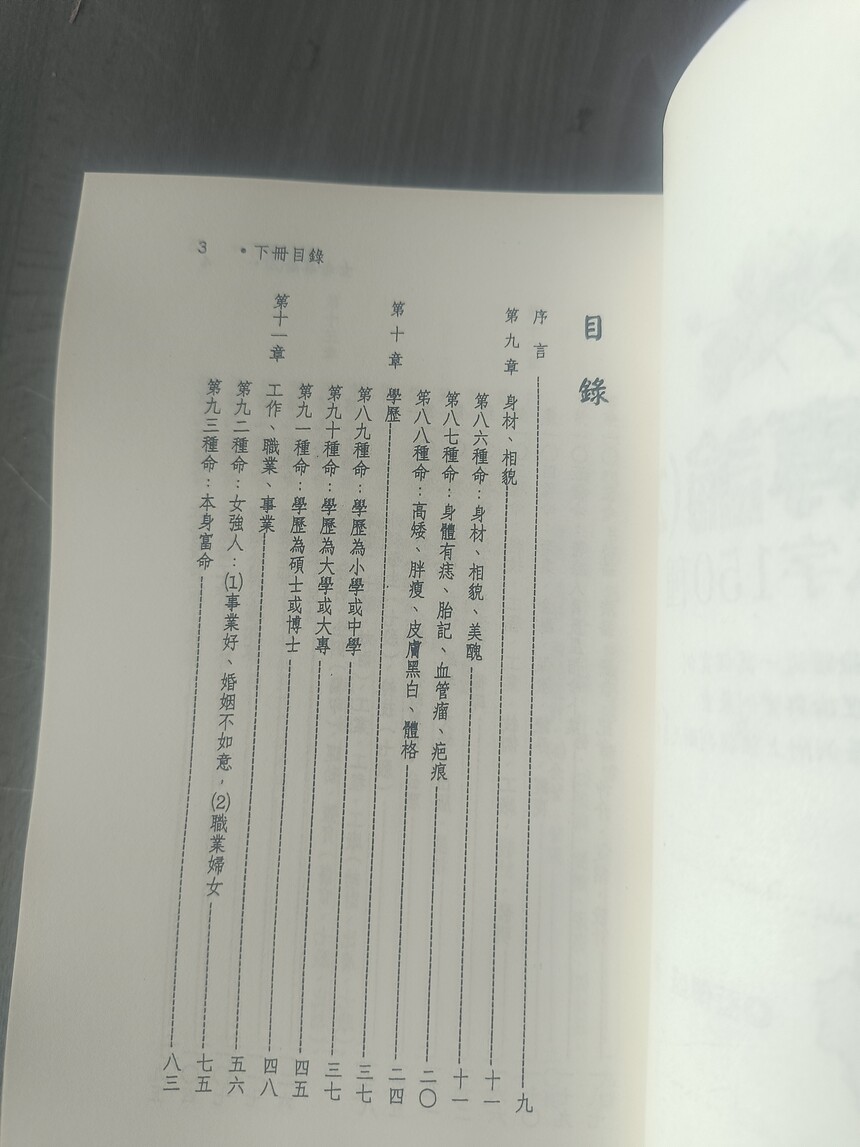 3 •下冊目錄
目錄
序言 九
第九章 身材、相貌 十一
第八六種命：身材、相貌、美醜 十一
第八七種命：身體有痣、胎記、血管瘤、疤痕 二〇
第八八種命：高矮、胖瘦、皮膚黑白、體格 二四
第十章 學歷 三七
第八九種命：學歷為小學或中學 三七
第九十種命：學歷為大學或大專 四五
第九一種命：學歷為碩士或博士 四八
第十一章 工作、職業、事業 五六
第九二種命：女強人：⑴事業好、婚姻不如意，⑵職業婦女 七五
第九三種命：本身富命 八三